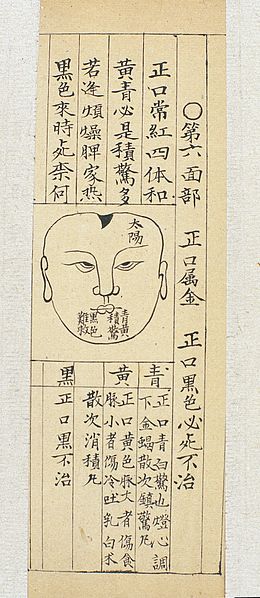 ○第六面部　正口属金　正口黑色必死不治
正口常紅四体和
黃青必是積驚多
若逢煩燥脾家熱
黑色來時死柰何
太陽
青黃
積驚
黑色
難救
青
正口青白驚也燈心調
下金蝎散次鎮驚丸
黃
正口黃色脉大者傷食
脉小者傷冷吐乳白朮
散次消積丸
黑
正口黑不治